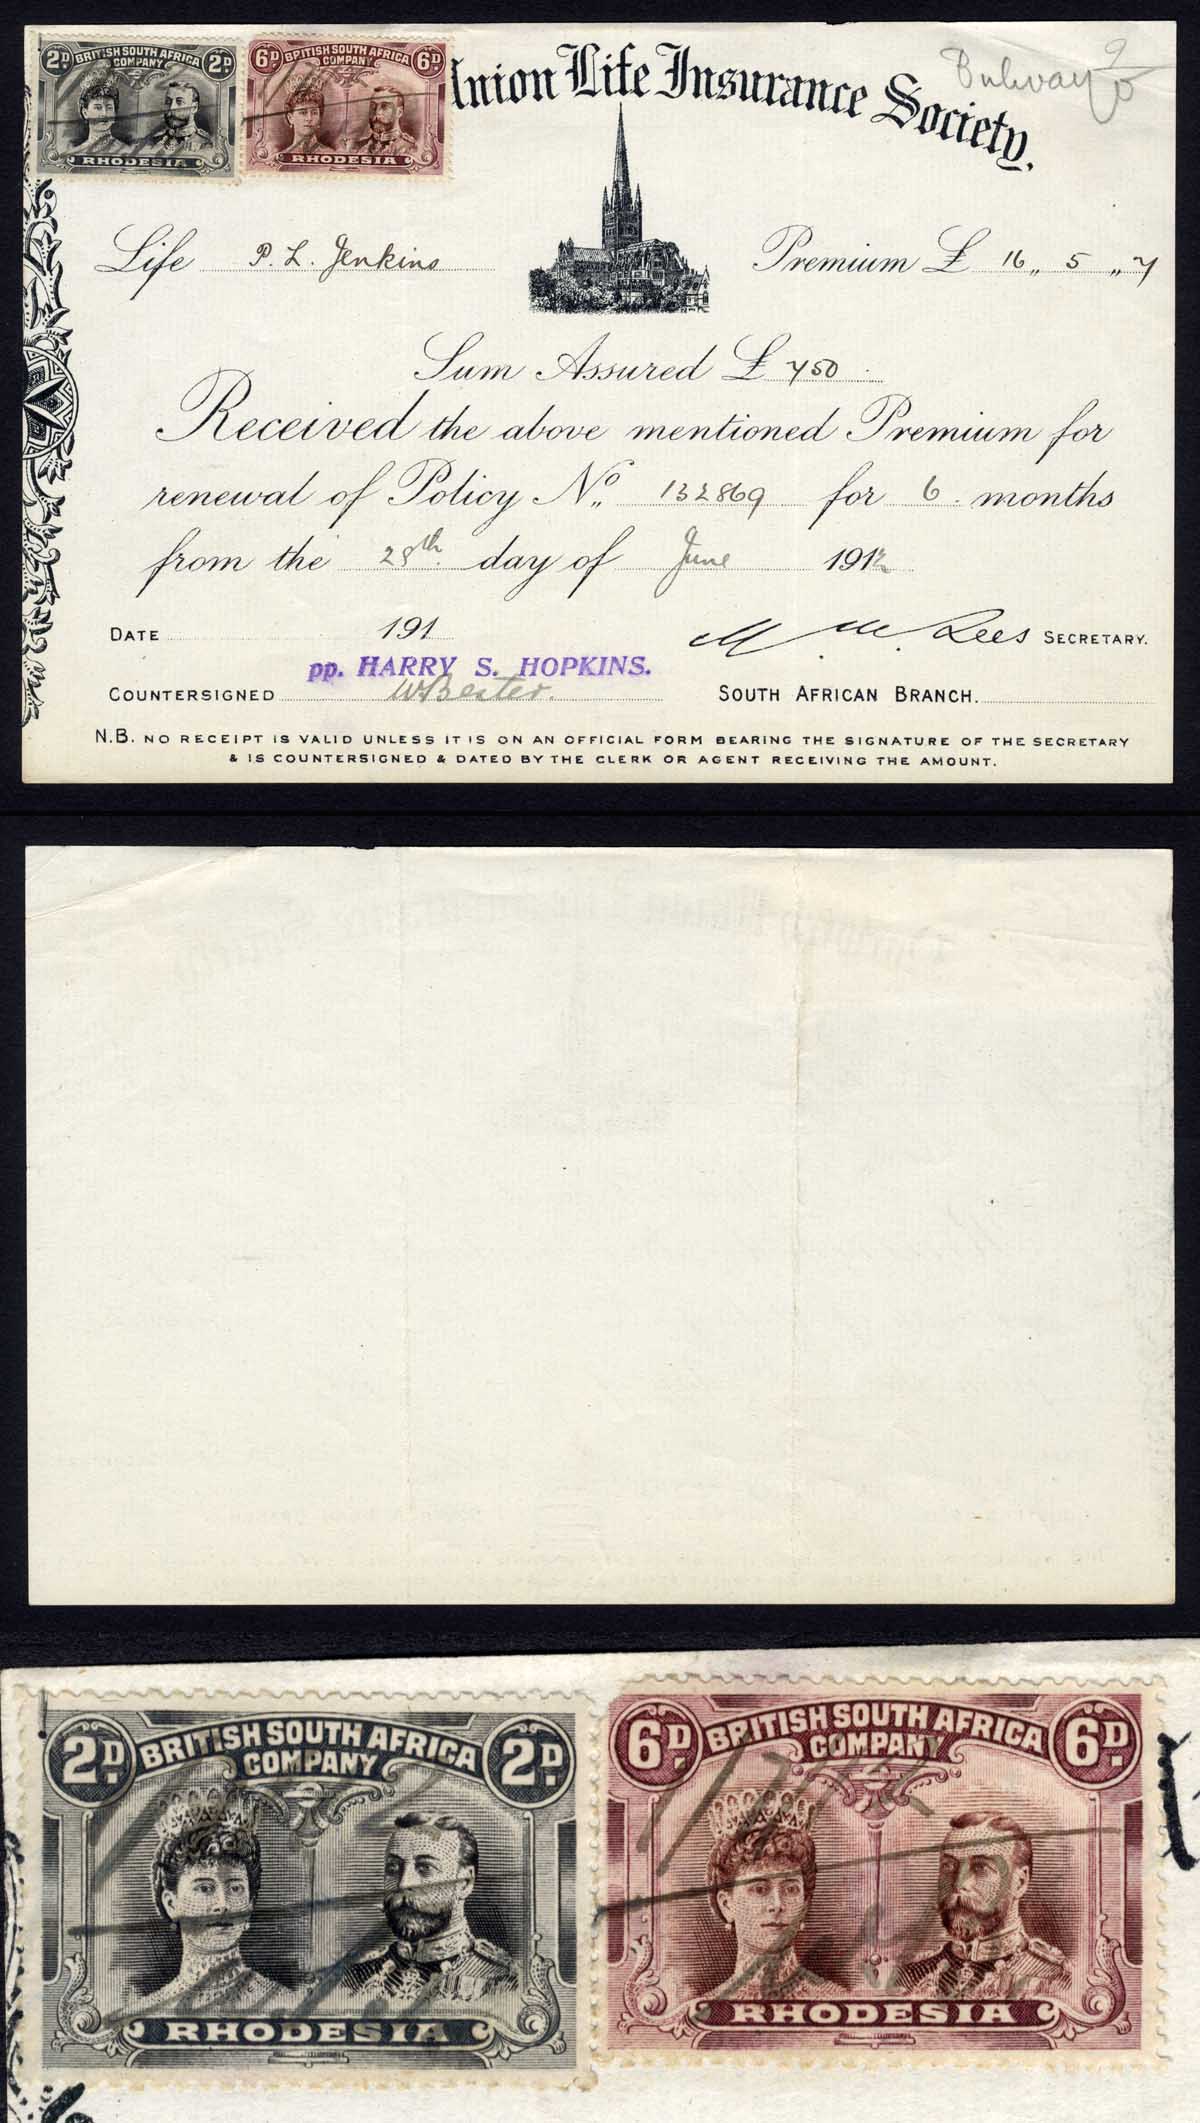 2D BRITISH SOUTH AFRICA COMPANY 2D
RHODESIA
6D BRITISH SOUTH AFRICA COMPANY 6D
RHODESIA
Union Life Insurance Society.
Life P. L. Jenkins
Premium £ 16 " 5 " 7
Sum Assured £ 750
Received the above mentioned Premium for
renewal of Policy No. 132869 for 6 months
from the 28th day of June 1912
DATE 191
SECRETARY.
pp. HARRY S. HOPKINS.
COUNTERSIGNED
SOUTH AFRICAN BRANCH.
N.B. NO RECEIPT IS VALID UNLESS IT IS ON AN OFFICIAL FORM BEARING THE SIGNATURE OF THE SECRETARY
& IS COUNTERSIGNED & DATED BY THE CLERK OR AGENT RECEIVING THE AMOUNT.
2D. BRITISH SOUTH AFRICA COMPANY 2D.
RHODESIA
6D. BRITISH SOUTH AFRICA COMPANY 6D.
RHODESIA